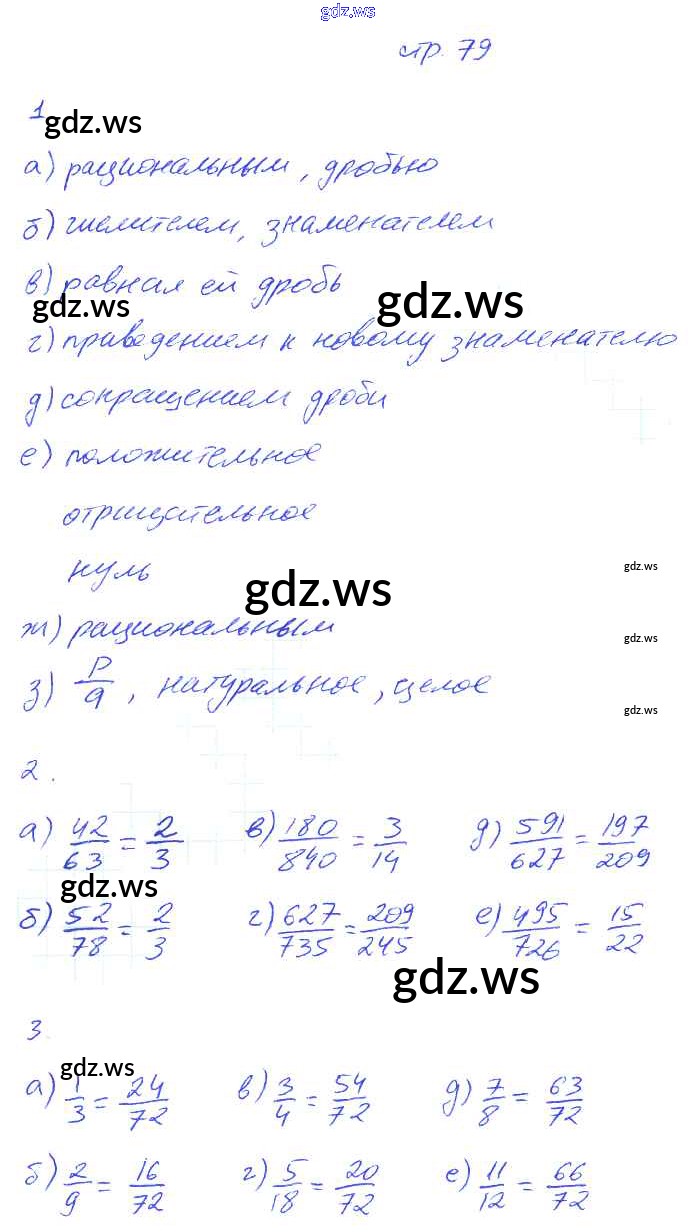 gdz.ws
стр. 79
1
gdz.ws
а) рациональным, дробью
б) числителем, знаменателем
в) равная ей дробь
gdz.ws
gdz.ws
г) приведением к новому знаменателю
д) сокращением дроби
е) положительное
отрицательное
нуль
gdz.ws
gdz.ws
ж) рациональным
gdz.ws
з) p/q, натуральное, целое
gdz.ws
2.
а) 42/63 = 2/3 в) 180/840 = 3/14 д) 591/627 = 197/209
gdz.ws
б) 52/78 = 2/3 г) 627/735 = 209/245 е) 495/726 = 15/22
gdz.ws
3.
gdz.ws
а) 1/3 = 24/72 в) 3/4 = 54/72 д) 7/8 = 63/72
б) 2/9 = 16/72 г) 5/18 = 20/72 е) 11/12 = 66/72